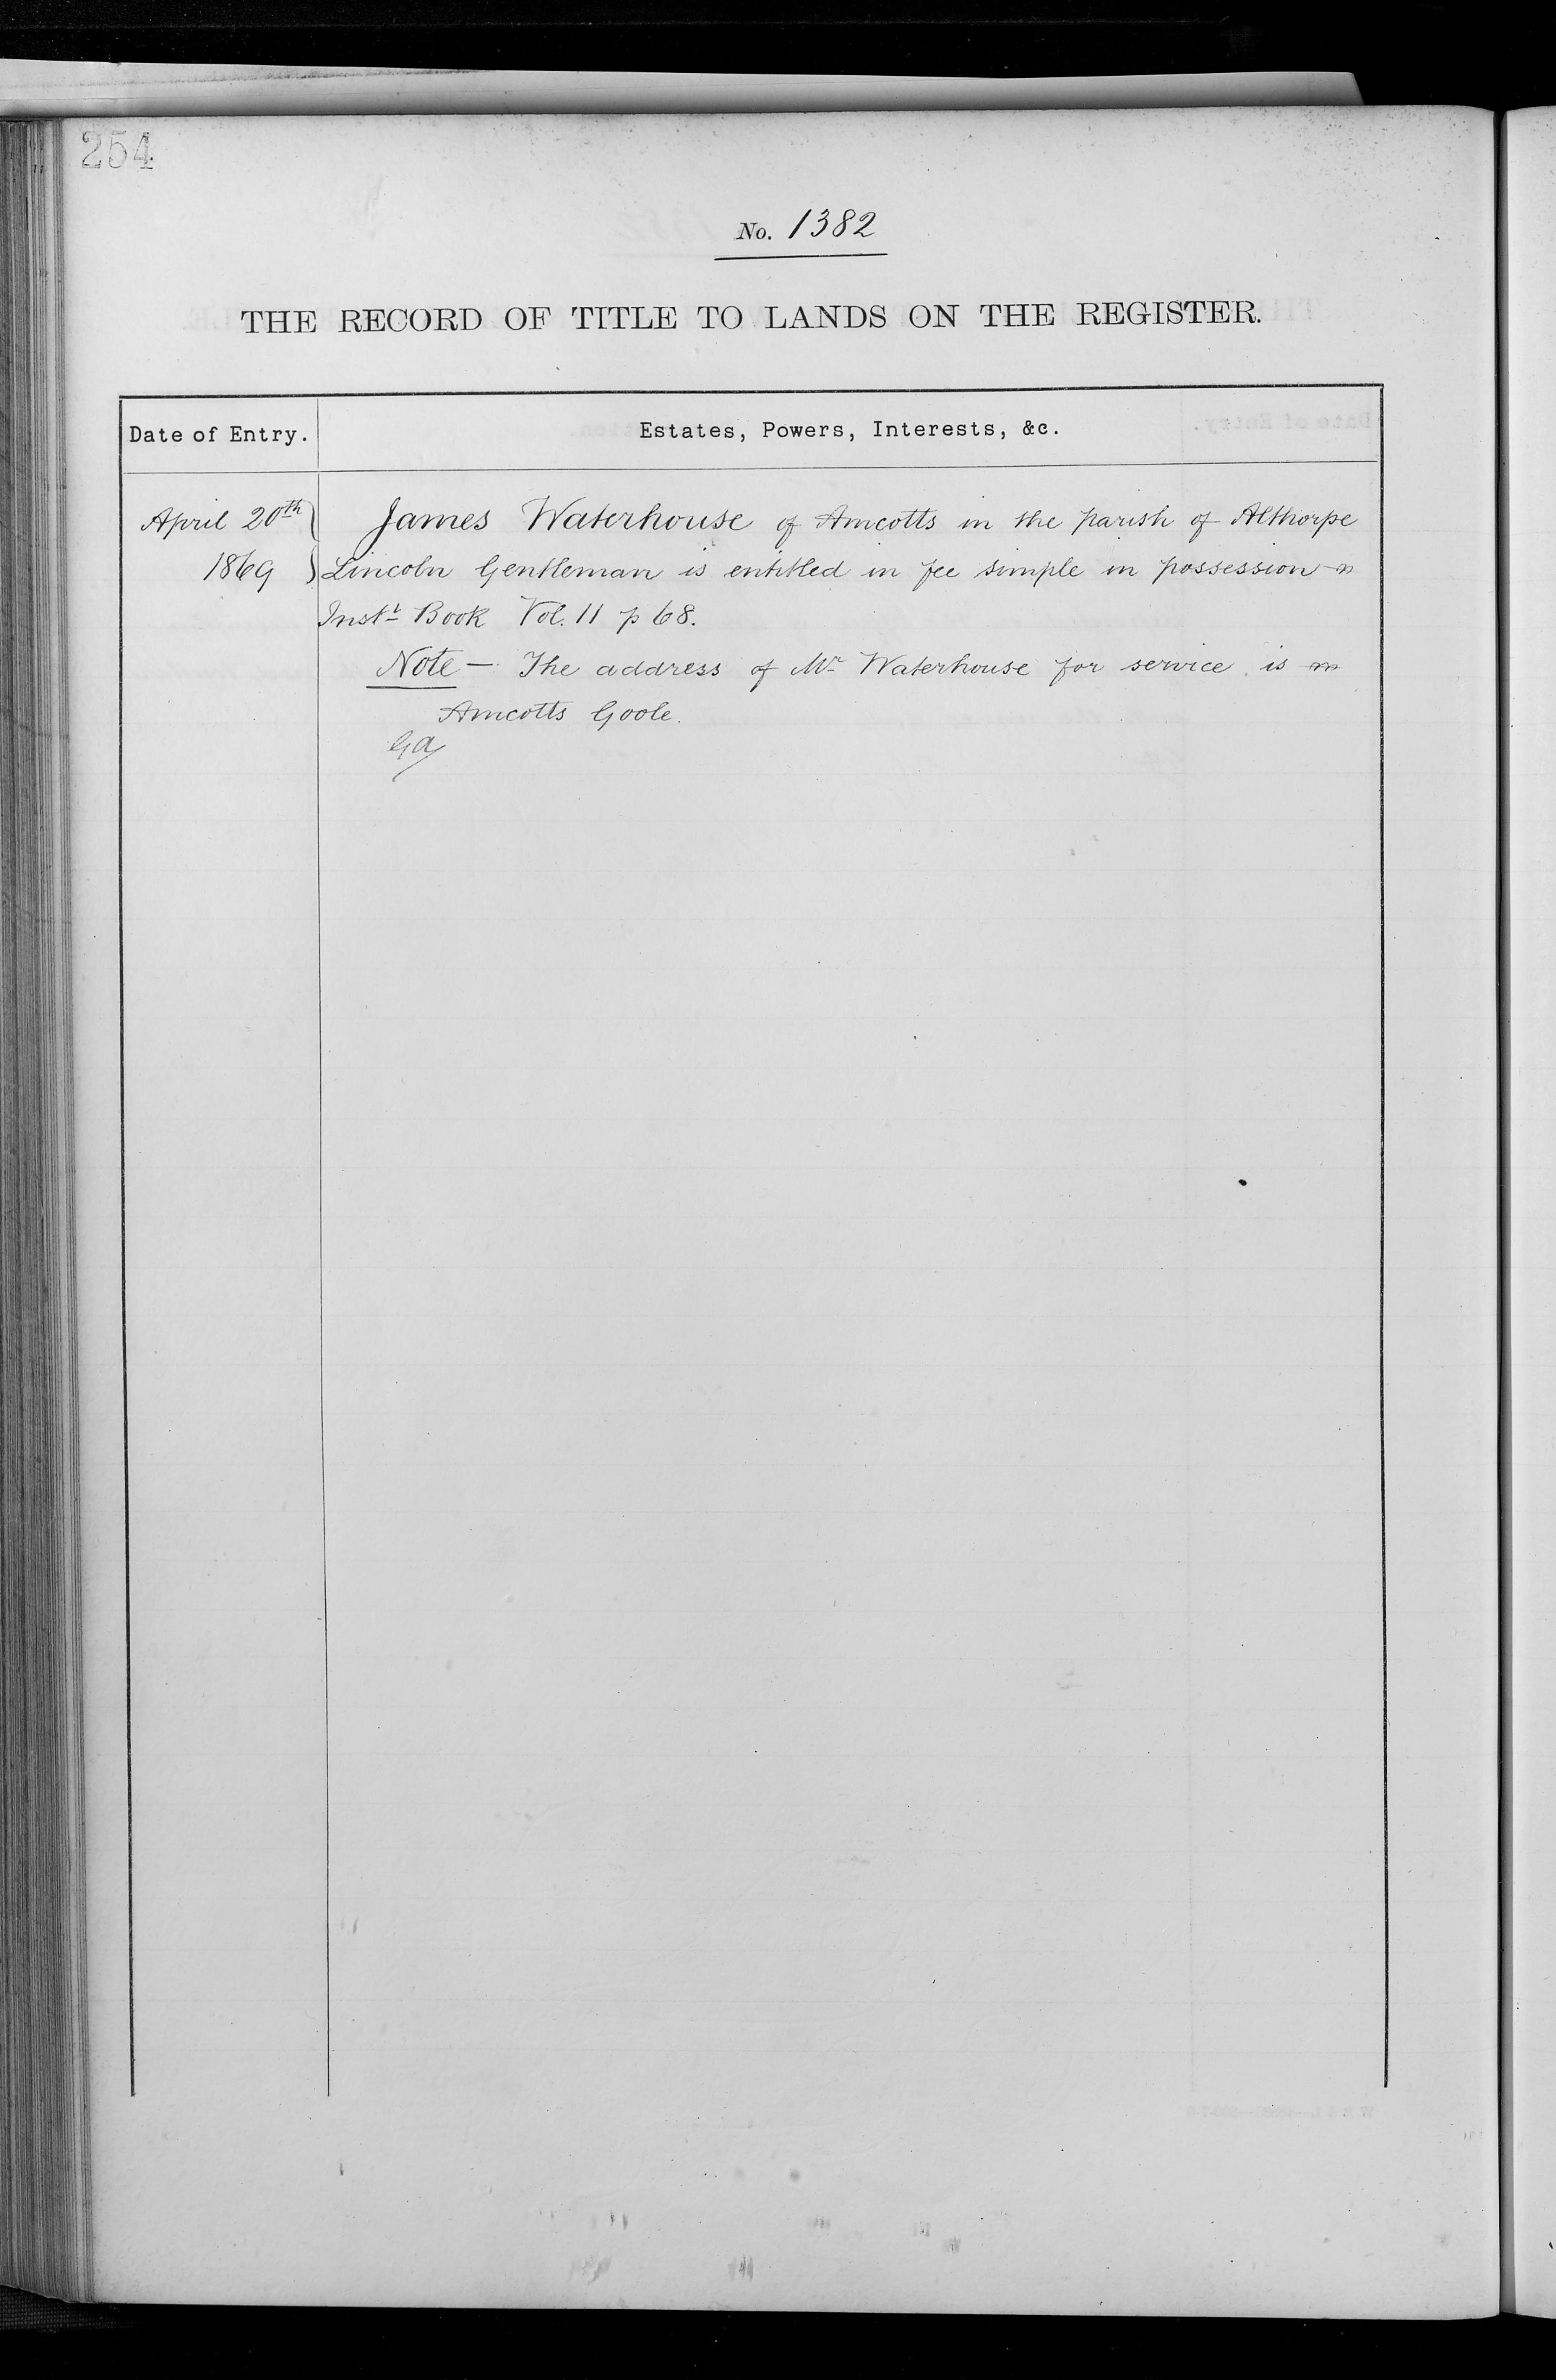 254
No. 1382
THE RECORD OF TITLE TO LANDS ON THE REGISTER.
Date of Entry.
Estates, Powers, Interests, &c.
April 20th
1869
James Waterhouse of Amcotts in the parish of Althorpe
Lincoln Gentleman is entitled in fee simple in possession
Inst. Book Vol. 11 p 68.
Note — The address of Mr Waterhouse for service is
Amcotts Goole.